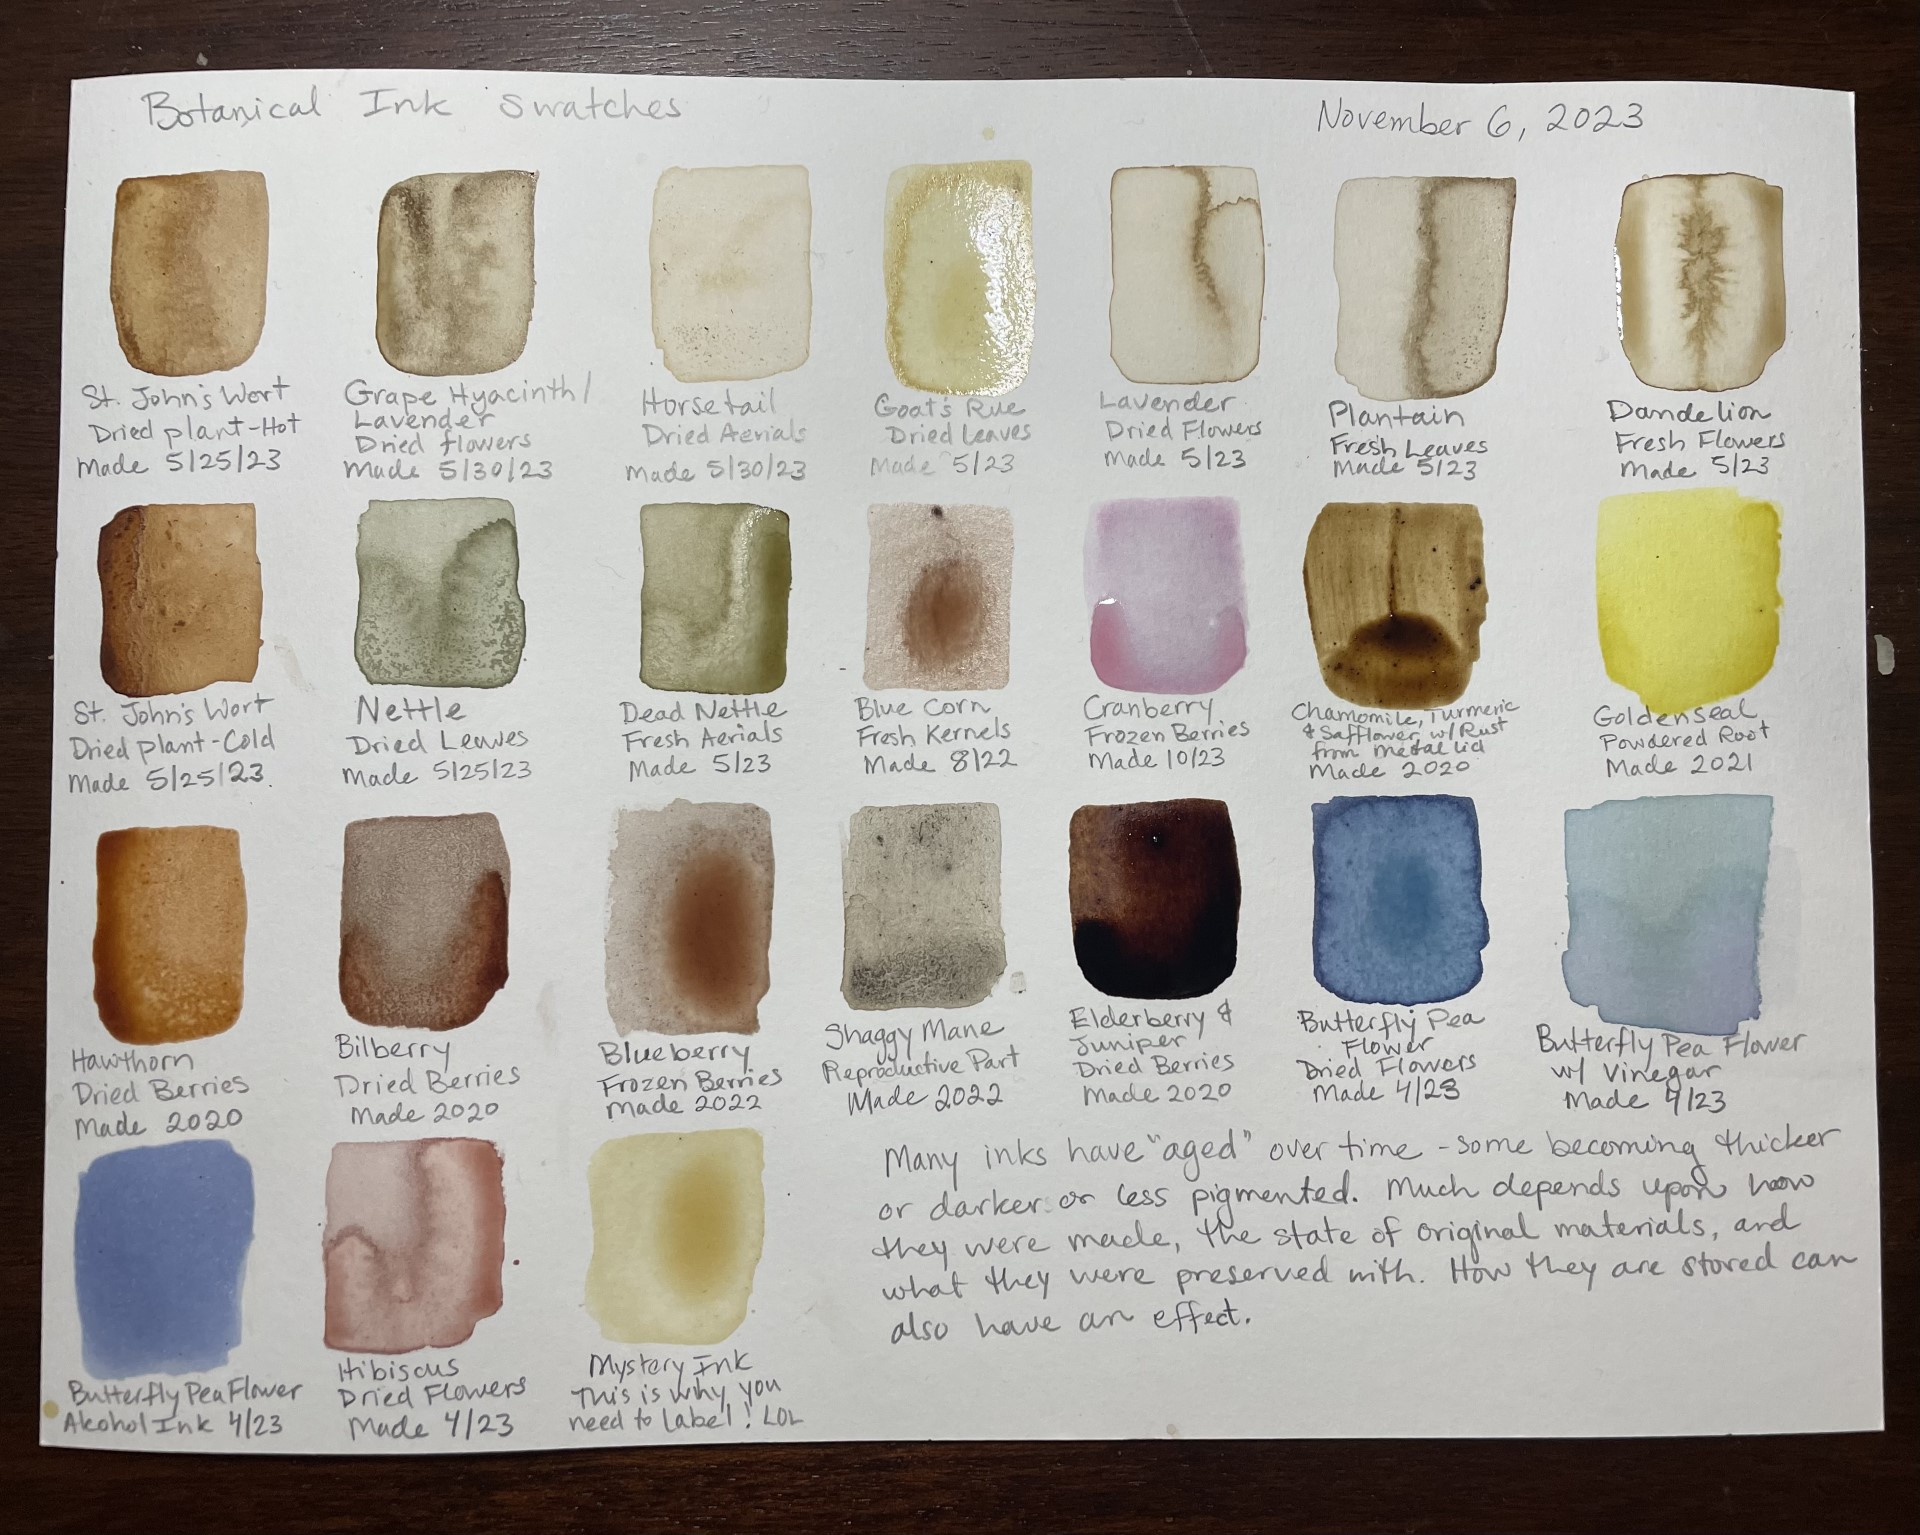 Botanical Ink Swatches
November 6, 2023
St. John's Wort
Dried plant-Hot
Made 5/25/23
Grape Hyacinth/
Lavender
Dried flowers
Made 5/30/23
Horsetail
Dried Aerials
Made 5/30/23
Goat's Rue
Dried Leaves
Made 5/23
Lavender
Dried Flowers
Made 5/23
Plantain
Fresh Leaves
Made 5/23
Dandelion
Fresh Flowers
Made 5/23
St. John's Wort
Dried plant-Cold
Made 5/25/23.
Nettle
Dried Leaves
Made 5/25/23
Dead Nettle
Fresh Aerials
Made 5/23
Blue Corn
Fresh Kernels
Made 8/22
Cranberry
Frozen Berries
Made 10/23
Chamomile, Turmeric
& Safflower w/ Rust
from metal lid
Made 2020
Goldenseal
Powdered Root
Made 2021
Hawthorn
Dried Berries
Made 2020
Bilberry
Dried Berries
Made 2020
Blueberry
Frozen Berries
Made 2022
Shaggy Mane
Reproductive Part
Made 2022
Elderberry &
Juniper
Dried Berries
Made 2020
Butterfly Pea
Flower
Dried Flowers
Made 4/23
Butterfly Pea Flower
w/ Vinegar
Made 4/23
Butterfly Pea Flower
Alcohol Ink 4/23
Hibiscus
Dried Flowers
Made 4/23
Mystery Ink
This is why you
need to label! LOL
Many inks have "aged" over time - some becoming thicker
or darker or less pigmented. Much depends upon how
they were made, the state of original materials, and
what they were preserved with. How they are stored can
also have an effect.